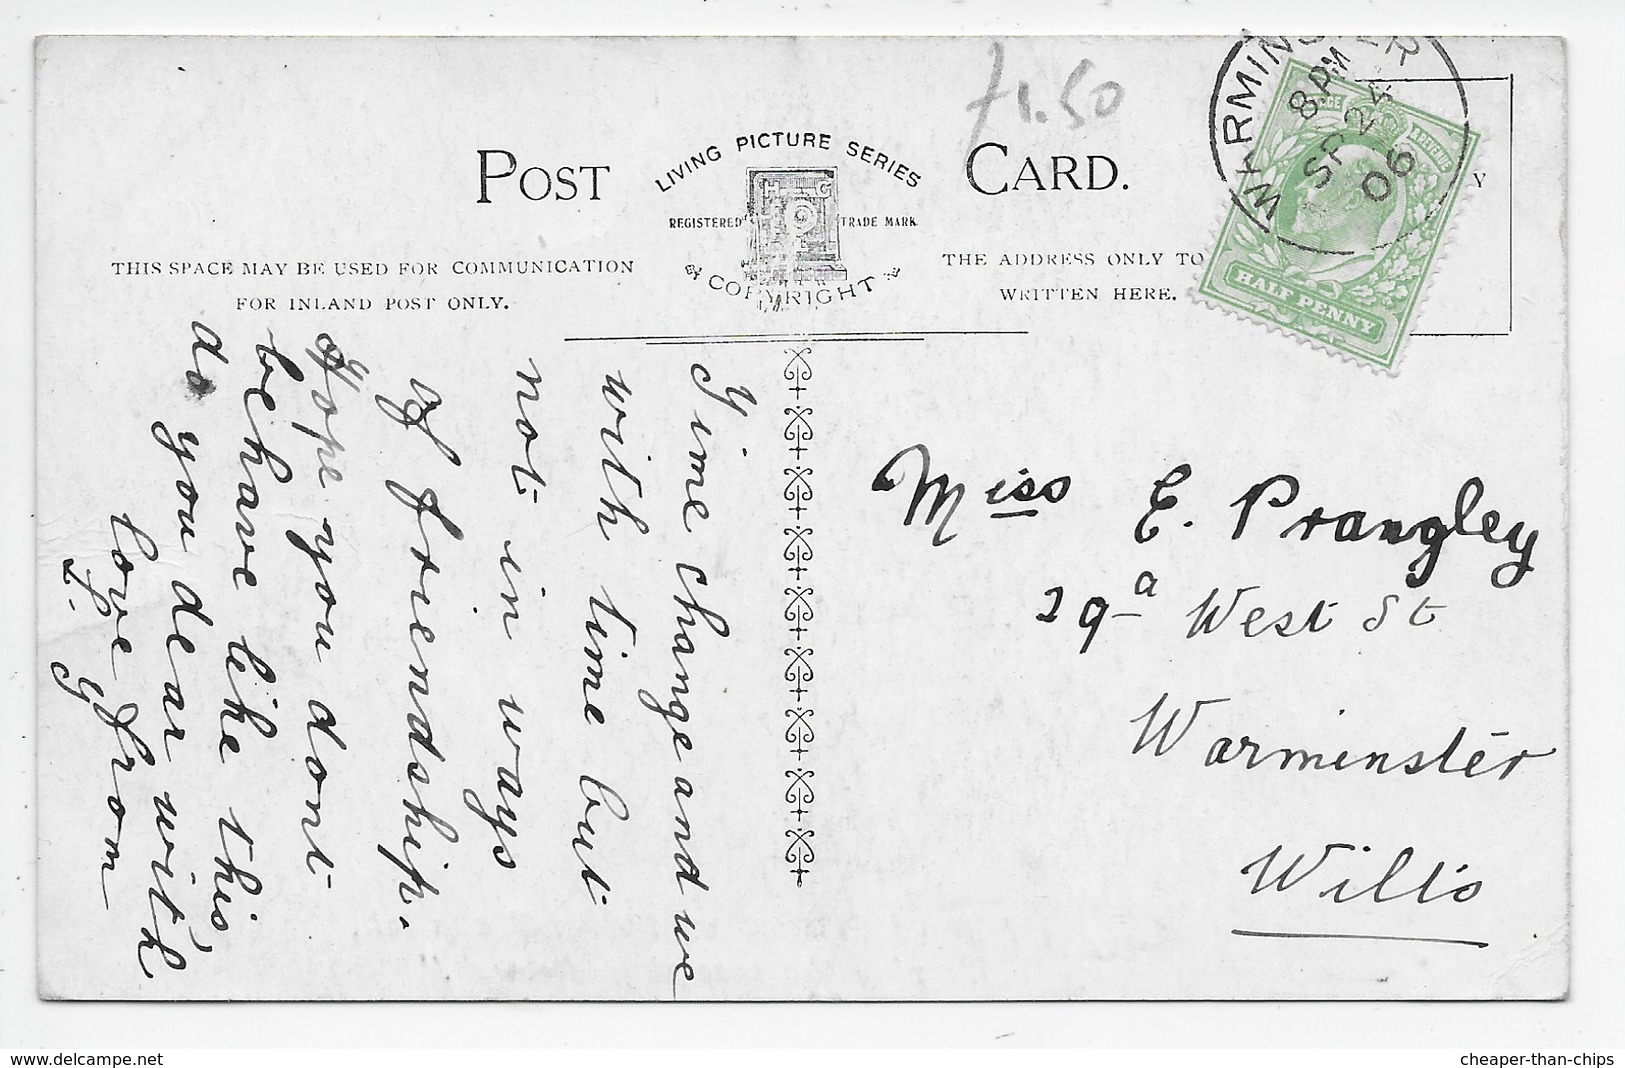 POST
LIVING PICTURE SERIES
H C
REGISTERED TRADE MARK
COPYRIGHT
CARD.
71.50
WARMINSTER
8 PM
SP 24
06
REVENUE
HALF PENNY
Y
THIS SPACE MAY BE USED FOR COMMUNICATION
FOR INLAND POST ONLY.
THE ADDRESS ONLY TO
WRITTEN HERE.
Time change and we
with time but
not in ways
of friendship.
Hope you dont
behave like this,
do you dear with
love from
L. Y
Miss E. Prangley
29a West St
Warminster
Wilts
www.delcampe.net
cheaper-than-chips